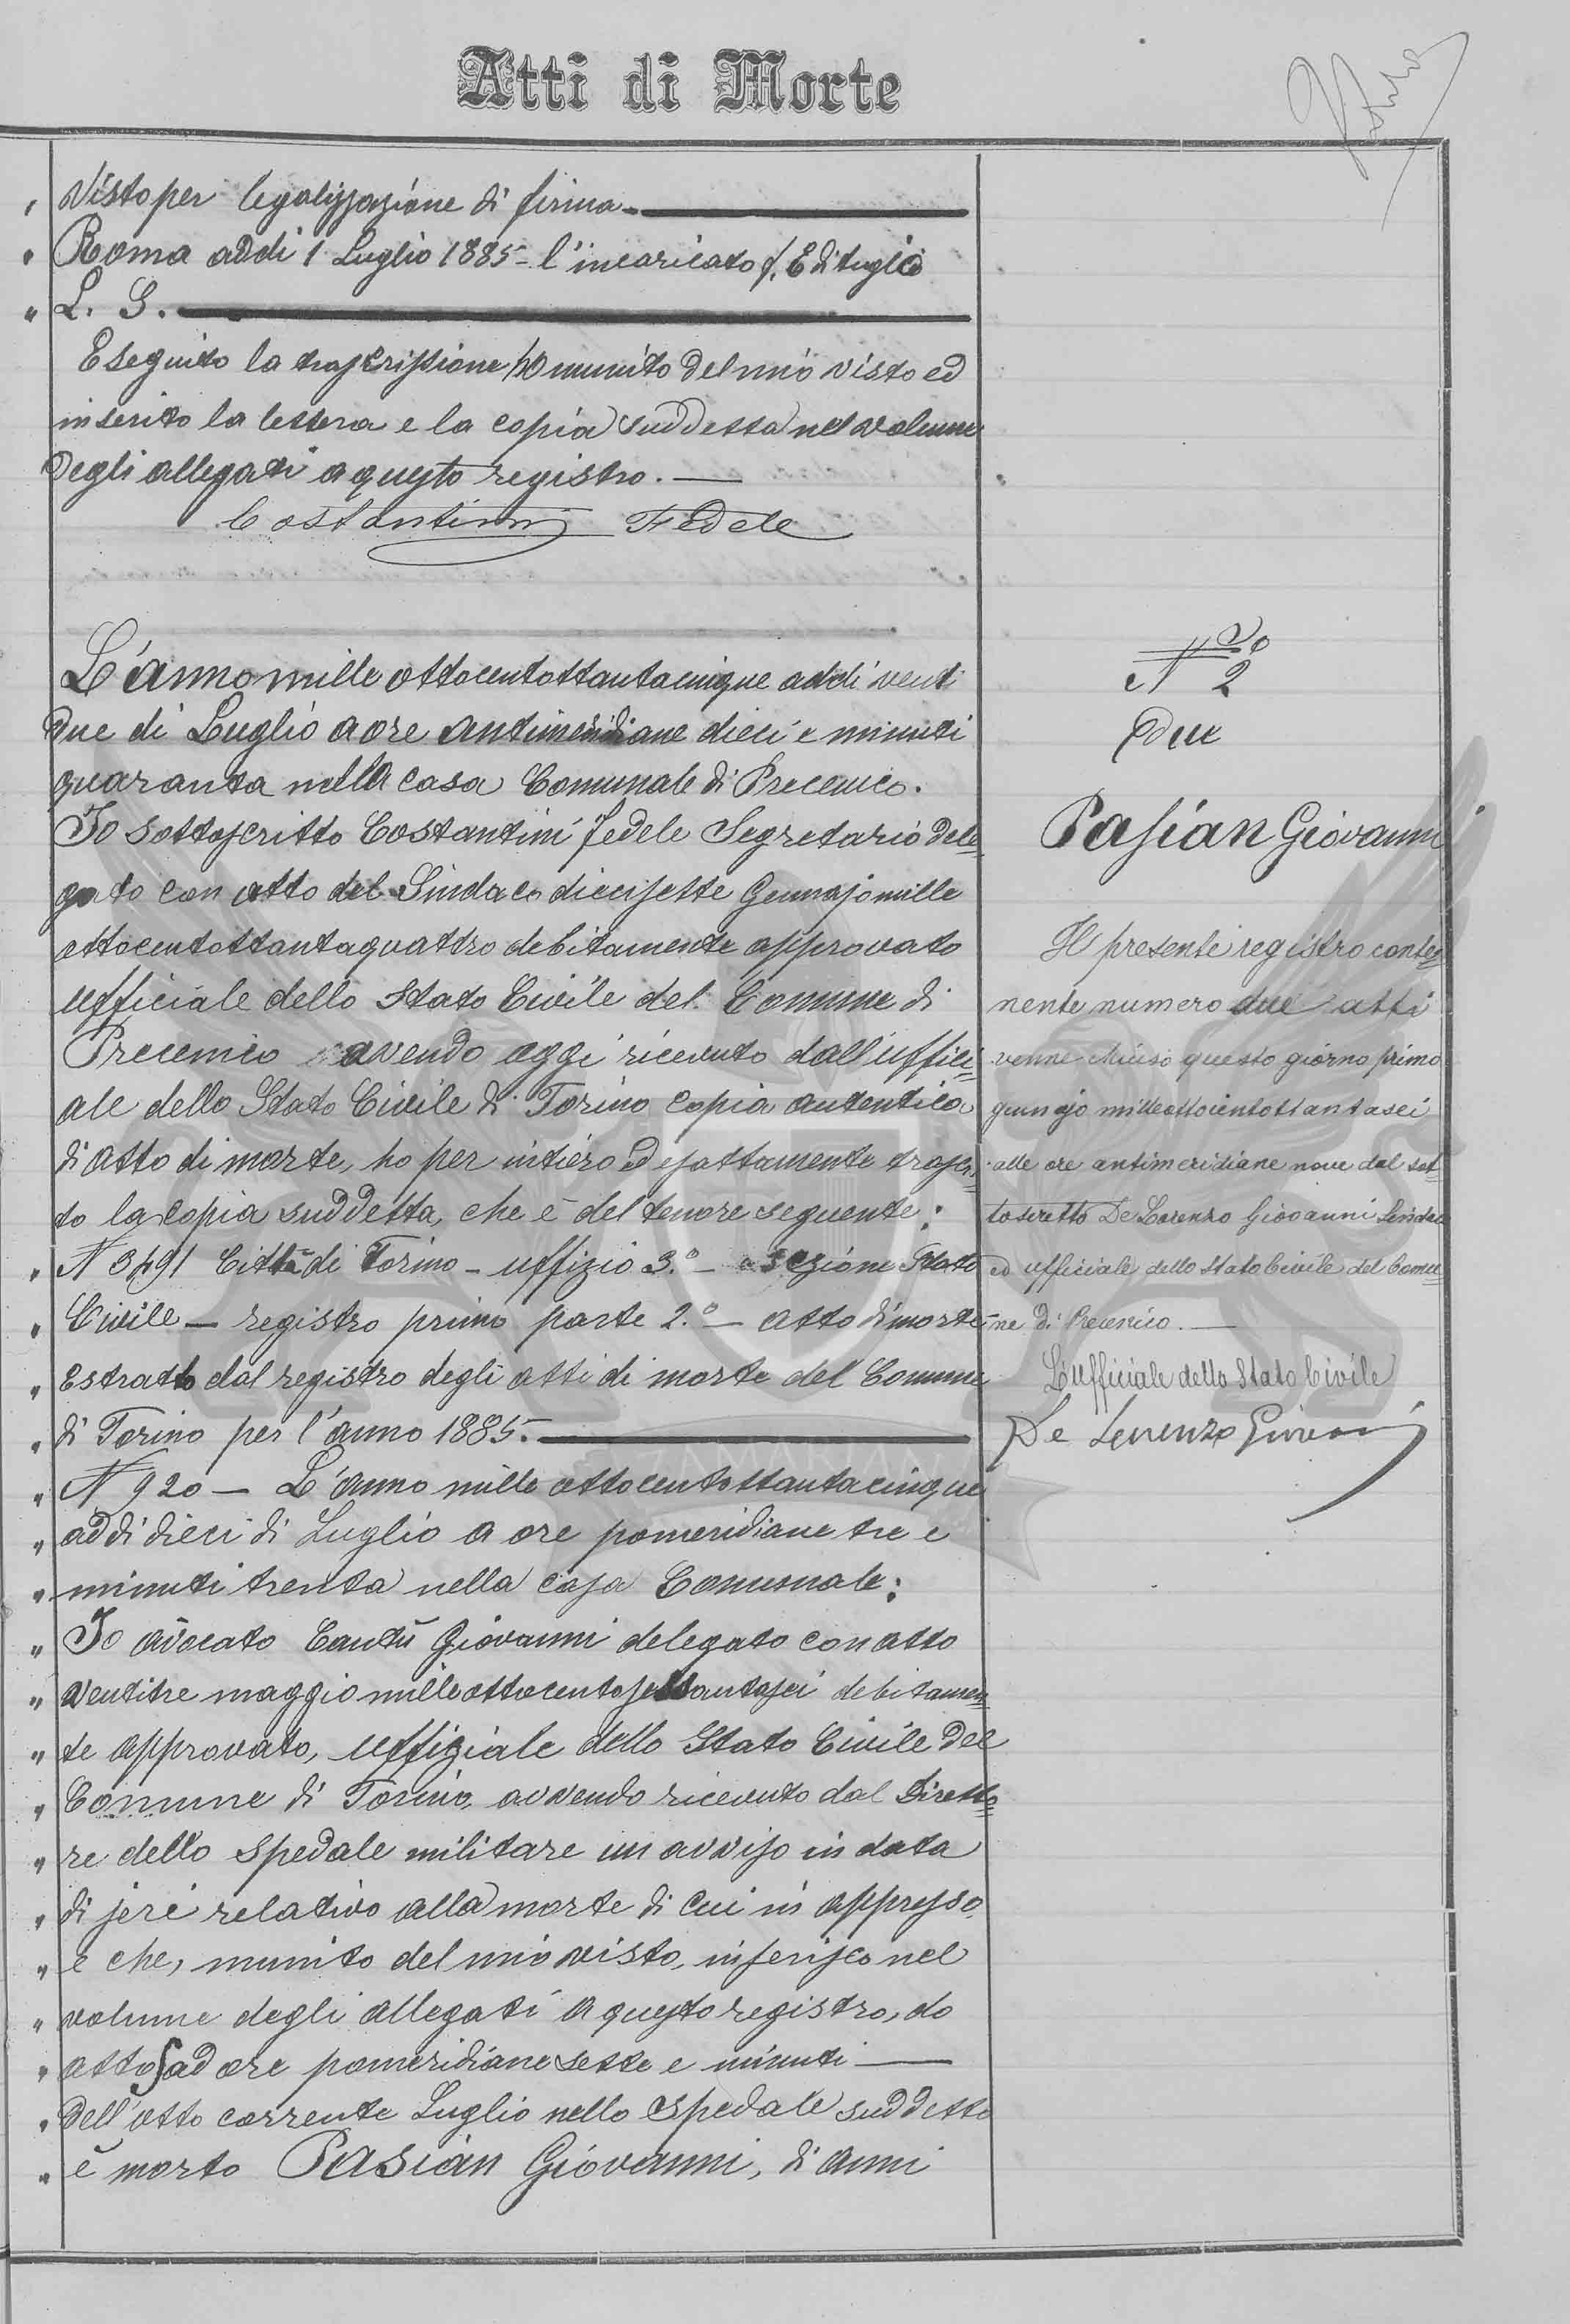 Atti di Morte
Visto per legalizzazione di firma
Roma addi 1 Luglio 1885 - l'incaricato f.
L. S.
Eseguito la trascrissione ho munito del mio visto ed
inserito la lettera e la copia suddetta nel volume
degli allegati a questo registro. —
Costantini Fedele
L'anno mille ottocentottantacinque addi venti
due di Luglio a ore antimeridiane dieci e minuti
quaranta nella casa Comunale di Precenico.
Io sottoscritto Costantini Fedele Segretario dele=
gato con atto del Sindaco diecisette Gennajo mille
ottocentottantaquattro debitamente approvato
Ufficiale dello Stato Civile del Comune di
Precenico avendo oggi ricevuto dall'uffici=
ale dello Stato Civile di Torino copia autentica
di atto di morte, ho per intiero ed esattamente trascrit=
to la copia suddetta, che è del tenore seguente:
" N 3491 Città di Torino - uffizio 3.° - sezione Stato
" Civile — registro primo parte 2.° — atto di morte
" estratto dal registro degli atti di morte del Comune
" di Torino per l'anno 1885.
" N 920 — L'anno mille ottocentottantacinque
" addi dieci di Luglio a ore pomeridiane tre e
" minuti trenta nella casa Comunale:
" Io avocato Cantù Giovanni delegato con atto
" ventitre maggio mille ottocentosettantasei debitamen=
" te approvato, uffiziale dello Stato Civile del
" Comune di Torino, avvendo ricevuto dal Diretto=
" re dello Spedale militare un avviso in data
" di jeri relativo alla morte di cui in appresso
" e che, munito del mio visto, inserisco nel
" volume degli allegati a questo registro, do
" atto ad ore pomeridiane sette e minuti —
" dell'otto corrente Luglio nello Spedale suddetto
" è morto Pasian Giovanni, di anni
N° 2
Due
Pasian Giovanni
Il presente registro conte=
nente numero due atti
venne chiuso questo giorno primo
gennajo milleottocentottantasei
alle ore antimeridiane nove dal sot=
toscritto De Lorenzo Giovanni Sindaco
ed ufficiale dello Stato Civile del Comu=
ne di Precenico. —
L'Ufficiale dello Stato Civile
De Lorenzo Giovanni